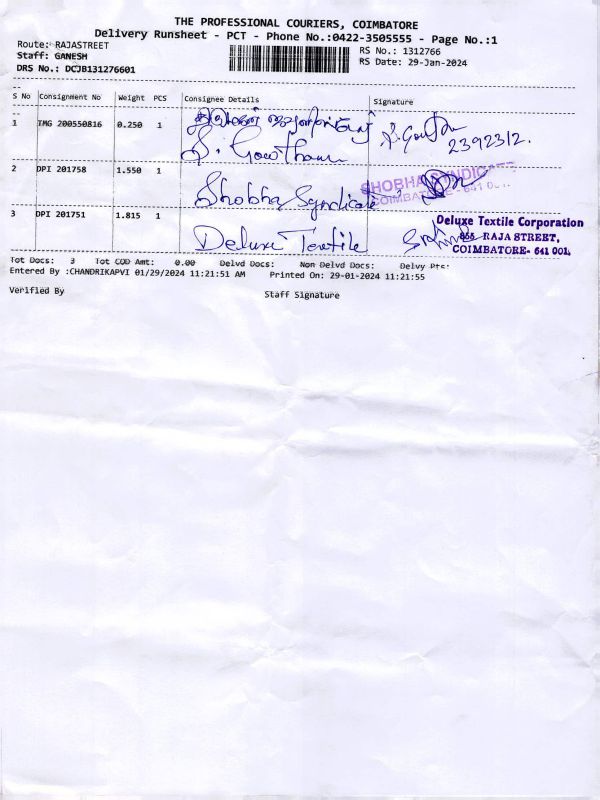 THE PROFESSIONAL COURIERS, COIMBATORE
Delivery Runsheet - PCT - Phone No.:0422-3505555 - Page No.:1
Route: RAJASTREET
Staff: GANESH
DRS No.: DCJB131276601
RS No.: 1312766
RS Date: 29-Jan-2024
S No Consignment No Weight PCS Consignee Details Signature
1 IMG 200550816 0.250 1
S. Gowtham S. Gowtham
2392312.
2 DPI 201758 1.550 1
Shobha Syndicate SHOBHA SYNDICATE
COIMBATORE - 641 0
3 DPI 201751 1.815 1
Deluxe Textile
Deluxe Textile Corporation
RAJA STREET,
COIMBATORE- 641 001.
Tot Docs: 3 Tot COD Amt: 0.00 Delvd Docs: Non Delvd Docs: Delvy Ptc:
Entered By :CHANDRIKAPVI 01/29/2024 11:21:51 AM Printed On: 29-01-2024 11:21:55
Verified By Staff Signature